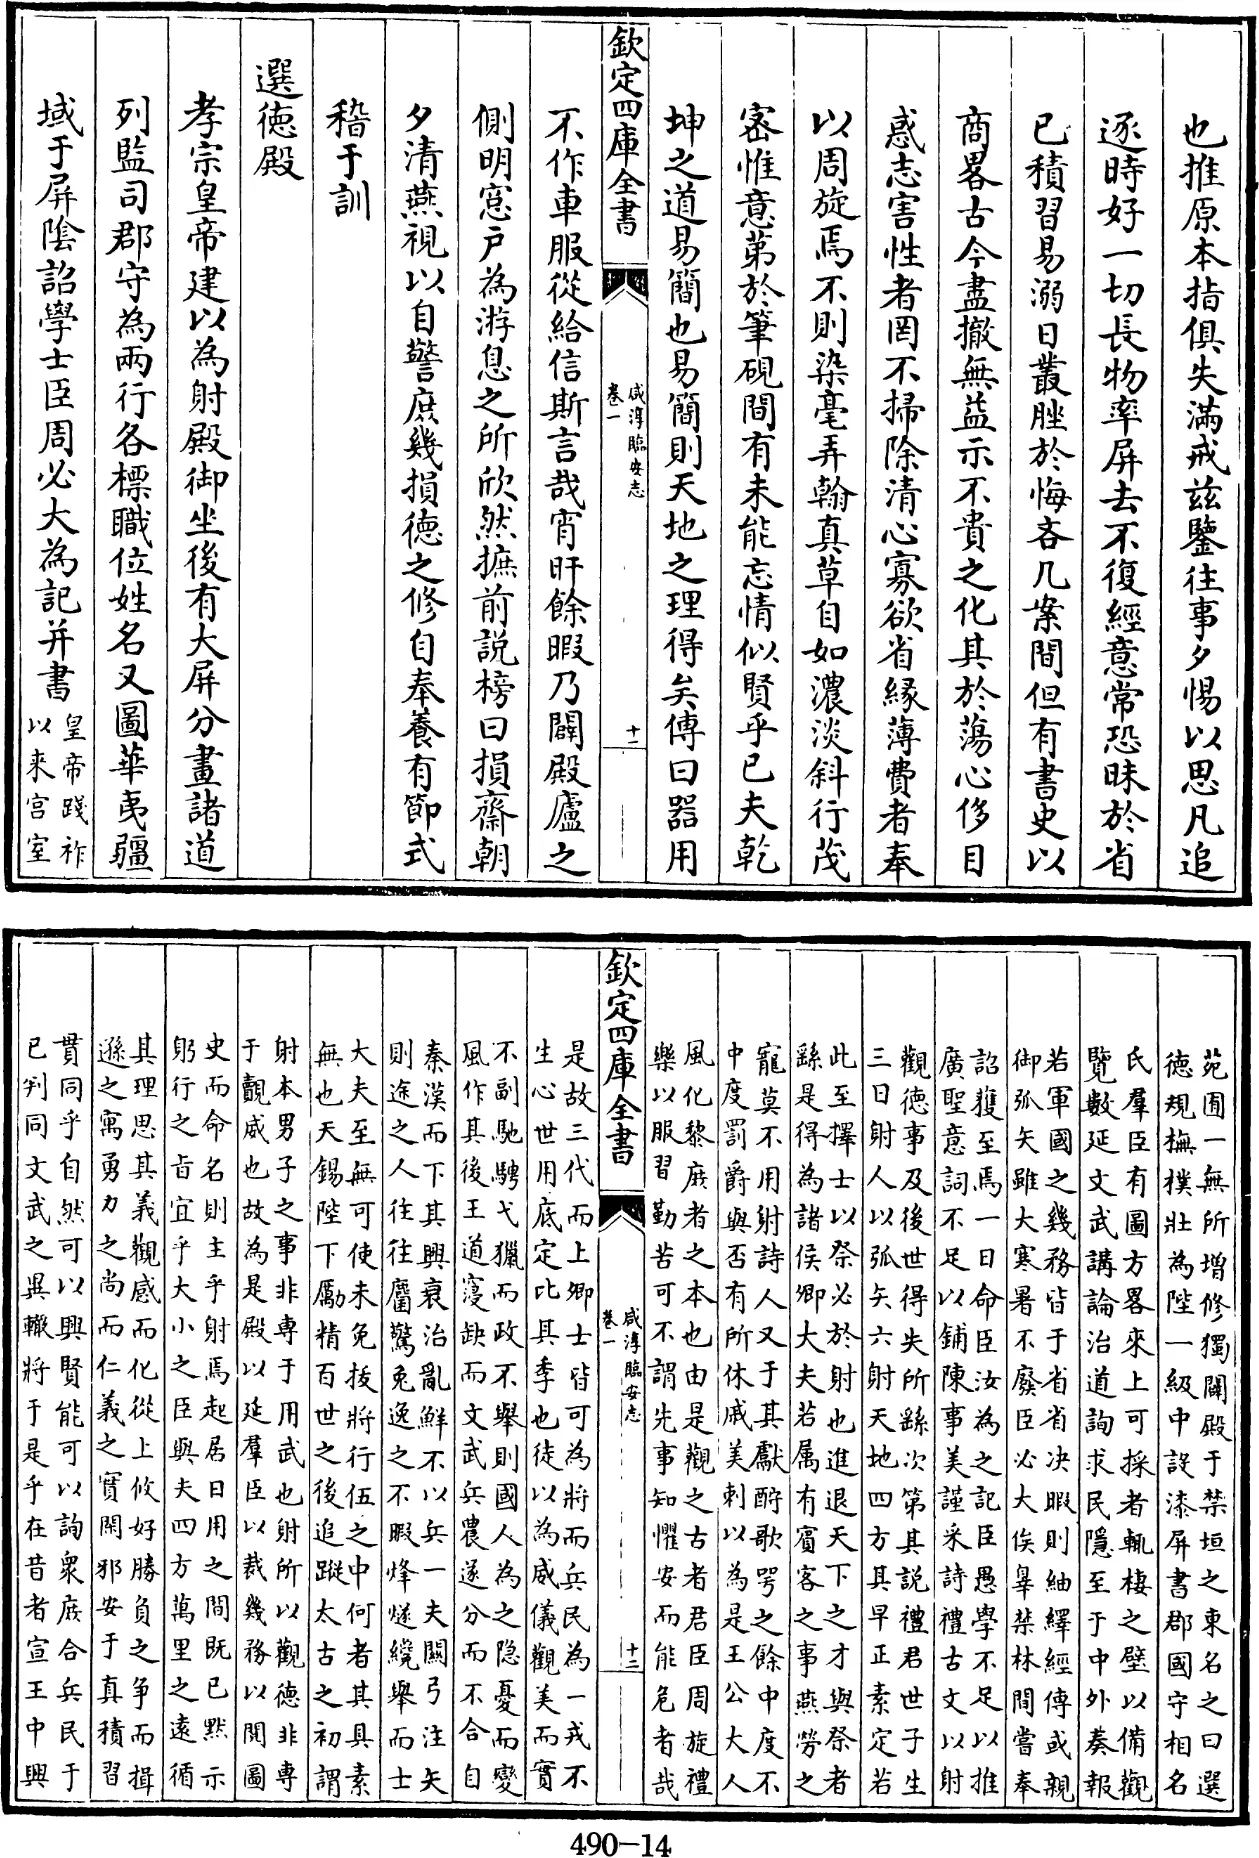 也推原本指俱失滿戒兹鑒往事夕惕以思凡追
逐時好一切長物率屏去不復經意常恐昧於省
已積習易溺日叢脞於悔吝几案間但有書史以
商畧古今盡撤無益示不貴之化其於蕩心侈目
惑志害性者罔不掃除清心寡欲省緣薄費者奉
以周旋焉不則染毫弄翰真草自如濃淡斜行茂
密惟意第於筆硯間有未能忘情似賢乎已夫乾
坤之道易簡也易簡則天地之理得矣傳曰器用
欽定四庫全書
咸淳臨安志
卷一
十一
不作車服從給信斯言哉宵旰餘暇乃闢殿廬之
側明窓户為游息之所欣然摭前説榜曰損齋朝
夕清燕視以自警庶幾損德之修自奉養有節式
稽于訓
選德殿
孝宗皇帝建以為射殿御坐後有大屏分畫諸道
列監司郡守為兩行各標職位姓名又圖華夷疆
域于屏陰詔學士臣周必大為記并書
皇帝踐祚
以来宫室
苑囿一無所增修獨闢殿于禁垣之東名之曰選
德規橅樸壯為陛一級中設漆屏書郡國守相名
氏羣臣有圖方畧來上可採者輒棲之壁以備觀
覽數延文武講論治道詢求民隱至于中外奏報
若軍國之幾務皆于省省决暇則紬繹經傳或親
御弧矢雖大寒暑不廢臣必大俟辠禁林間嘗奉
詔獲至焉一日命臣汝為之記臣愚學不足以推
廣聖意詞不足以鋪陳事美謹采詩禮古文以射
觀德事及後世得失所繇次第其説禮君世子生
三日射人以弧矢六射天地四方其早正素定若
此至擇士以祭必於射也進退天下之才與祭者
繇是得為諸侯卿大夫若属有賓客之事燕勞之
寵莫不用射詩人又于其獻酧歌咢之餘中度不
中度罰爵與否有所休戚美刺以為是王公大人
風化黎庶者之本也由是觀之古者君臣周旋禮
樂以服習勤苦可不謂先事知懼安而能危者哉
欽定四庫全書
咸淳臨安志
卷一
十二
是故三代而上卿士皆可為將而兵民為一戎不
生心世用底定比其季也徒以為威儀觀美而實
不副馳騁弋獵而政不舉則國人為之隐憂而變
風作其後王道寖缺而文武兵農遂分而不合自
秦漢而下其興衰治亂鮮不以兵一夫關弓注矢
則途之人往往麕驚兔逸之不暇烽燧纔舉而士
大夫至無可使未免拔將行伍之中何者其具素
無也天錫陛下勵精百世之後追蹤太古之初謂
射本男子之事非専于用武也射所以觀德非専
于觀威也故為是殿以延羣臣以裁幾務以閱圖
史而命名則主乎射焉起居日用之間既已黙示
躬行之旨宜乎大小之臣與夫四方萬里之遠循
其理思其義觀感而化從上攸好勝負之争而揖
遜之寓勇力之尚而仁義之實閑邪安于真積習
貫同乎自然可以興賢能可以詢衆庶合兵民于
已判同文武之異轍將于是乎在昔者宣王中興
490-14